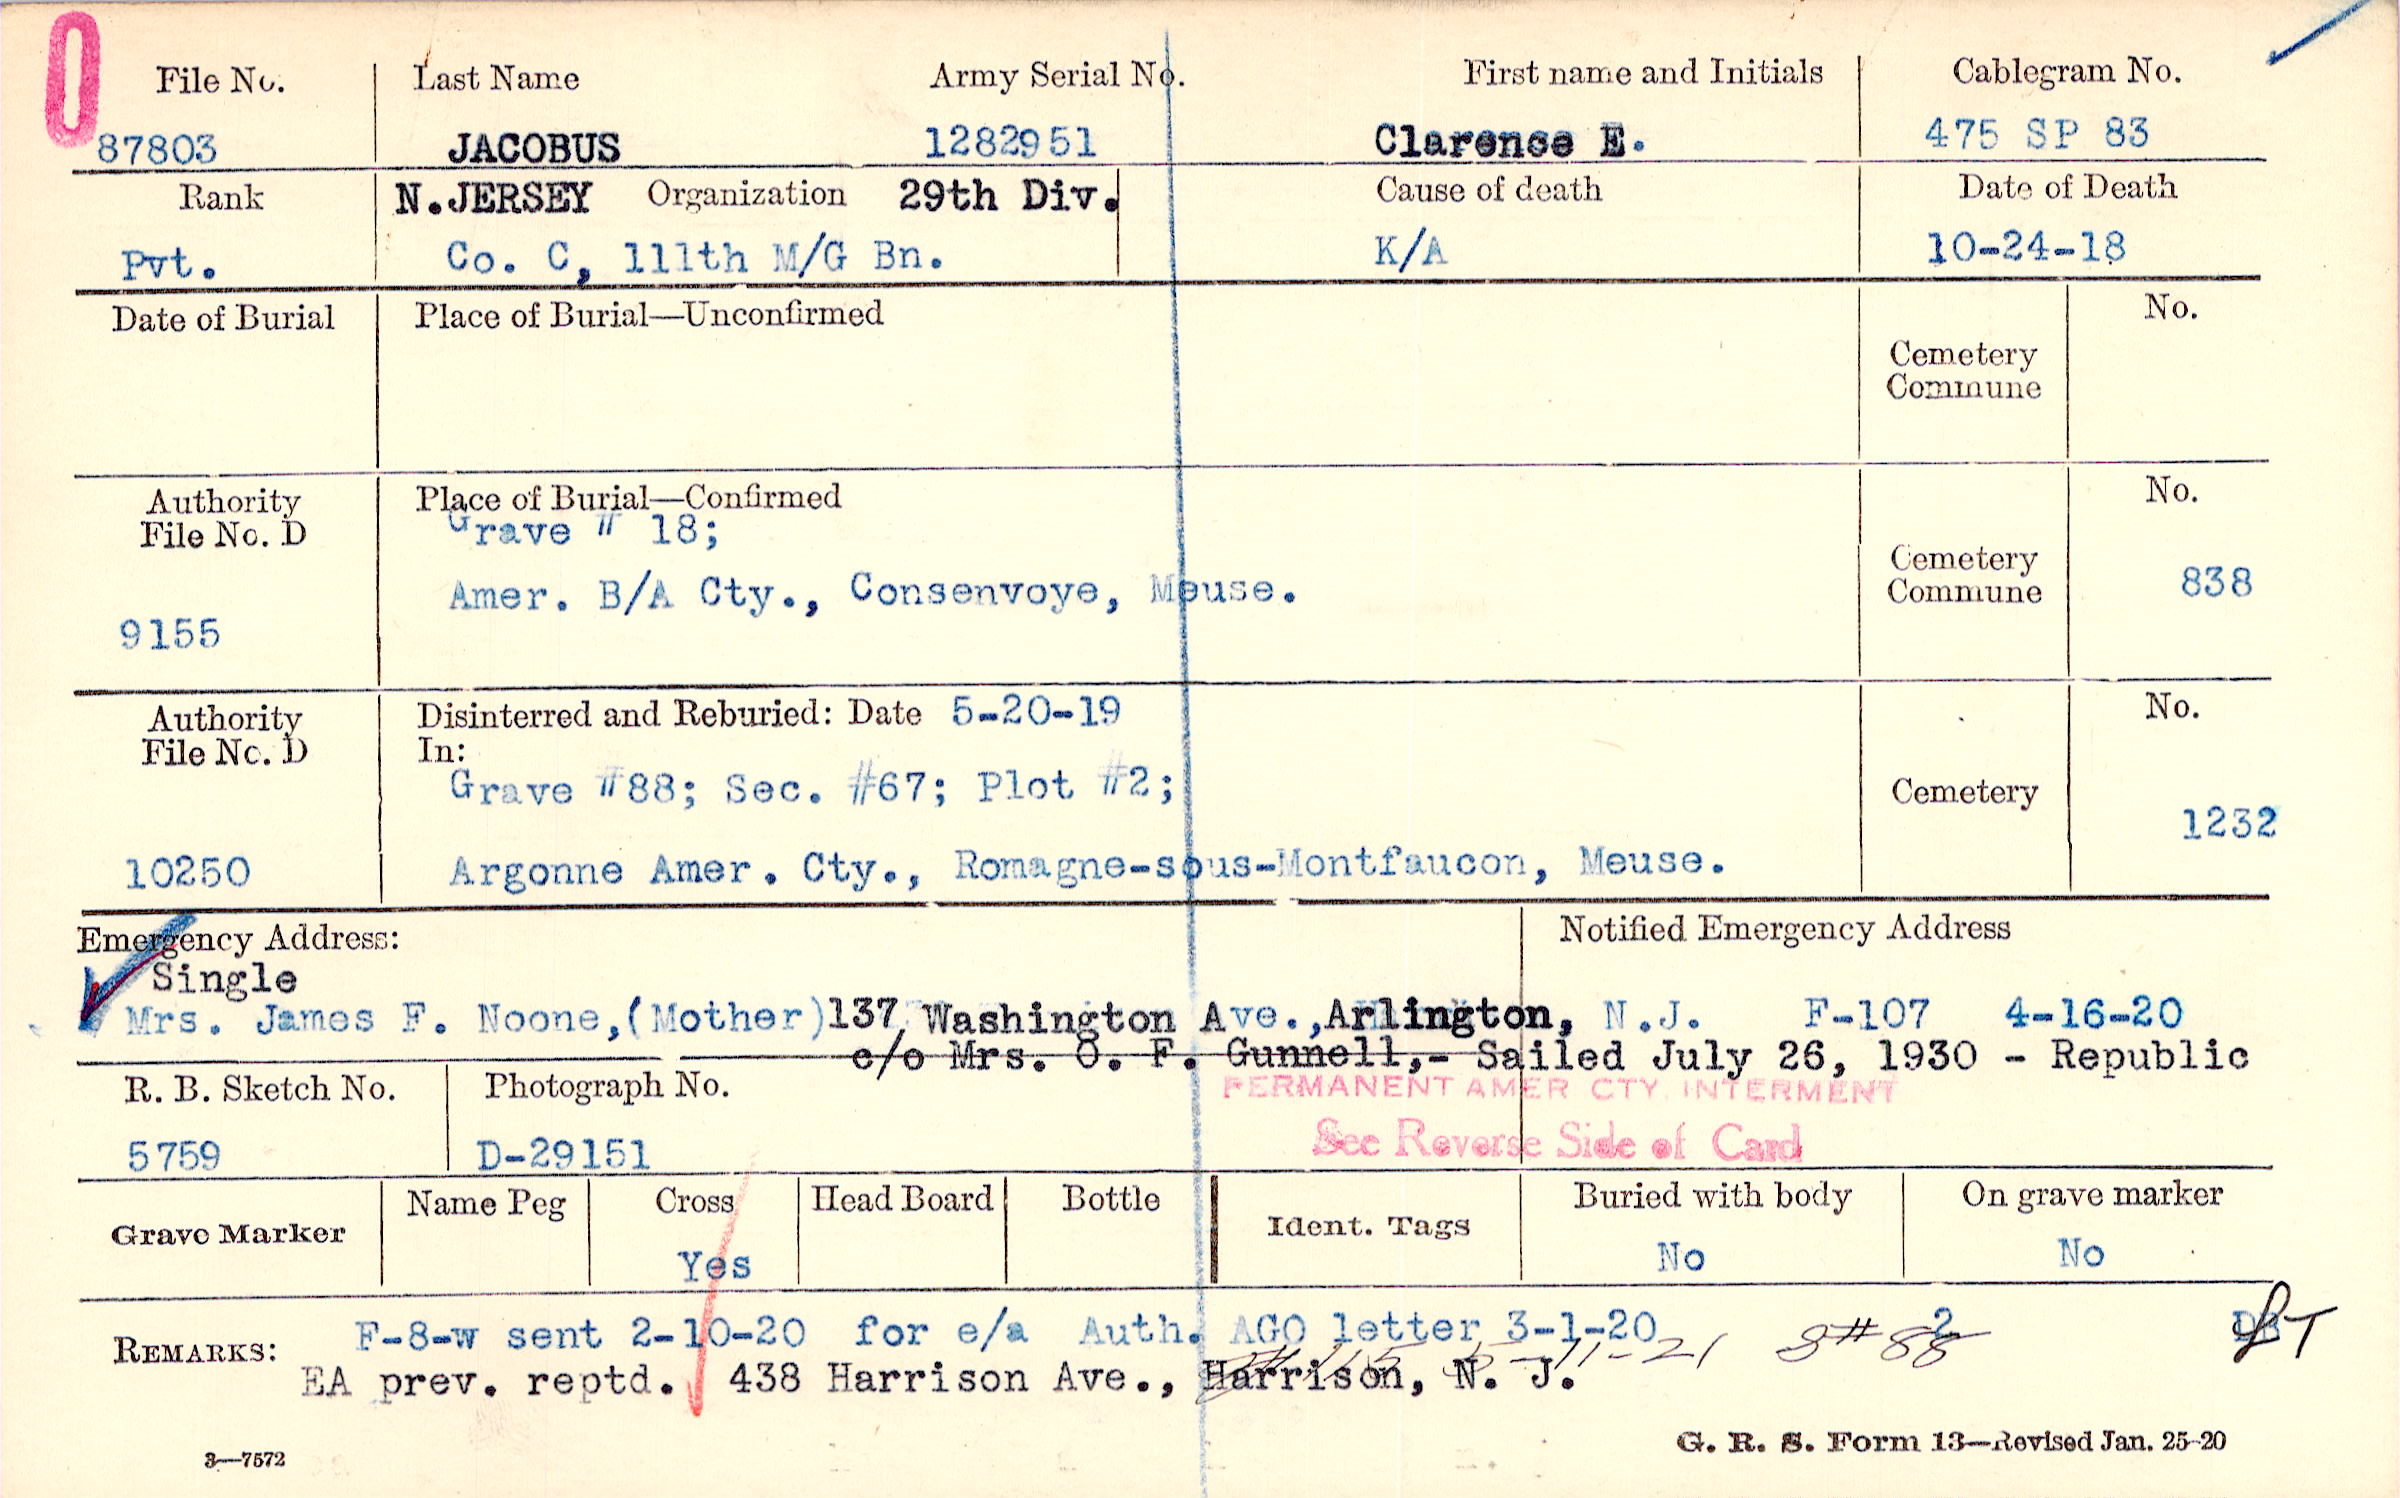 0
File No. Last Name Army Serial No. First name and Initials Cablegram No.
87803 JACOBUS 1282951 Clarense E. 475 SP 83
Rank N.JERSEY Organization 29th Div. Cause of death Date of Death
Pvt. Co. C, 111th M/G Bn. K/A 10-24-18
Date of Burial Place of Burial—Unconfirmed No.
Cemetery
Commune
Authority Place of Burial—Confirmed No.
File No. D Grave # 18;
Cemetery
Amer. B/A Cty., Consenvoye, Meuse. Commune 838
9155
Authority Disinterred and Reburied: Date 5-20-19 No.
File No. D In:
Grave #88; Sec. #67; Plot #2; Cemetery
1232
10250 Argonne Amer. Cty., Romagne-sous-Montfaucon, Meuse.
Emergency Address: Notified Emergency Address
Single
Mrs. James F. Noone,(Mother)137 Washington Ave.,Arlington, N.J. F-107 4-16-20
c/o Mrs. O. F. Gunnell,- Sailed July 26, 1930 - Republic
R. B. Sketch No. Photograph No. PERMANENT AMER CTY INTERMENT
See Reverse Side of Card
5759 D-29151
Grave Marker Name Peg Cross Head Board Bottle Ident. Tags Buried with body On grave marker
Yes No No
REMARKS: F-8-w sent 2-10-20 for e/a Auth. AGO letter 3-1-20 2
-11-21 #88
EA prev. reptd. 438 Harrison Ave., Harrison, N. J.
3—7572 G. R. S. Form 13—Revised Jan. 25-20